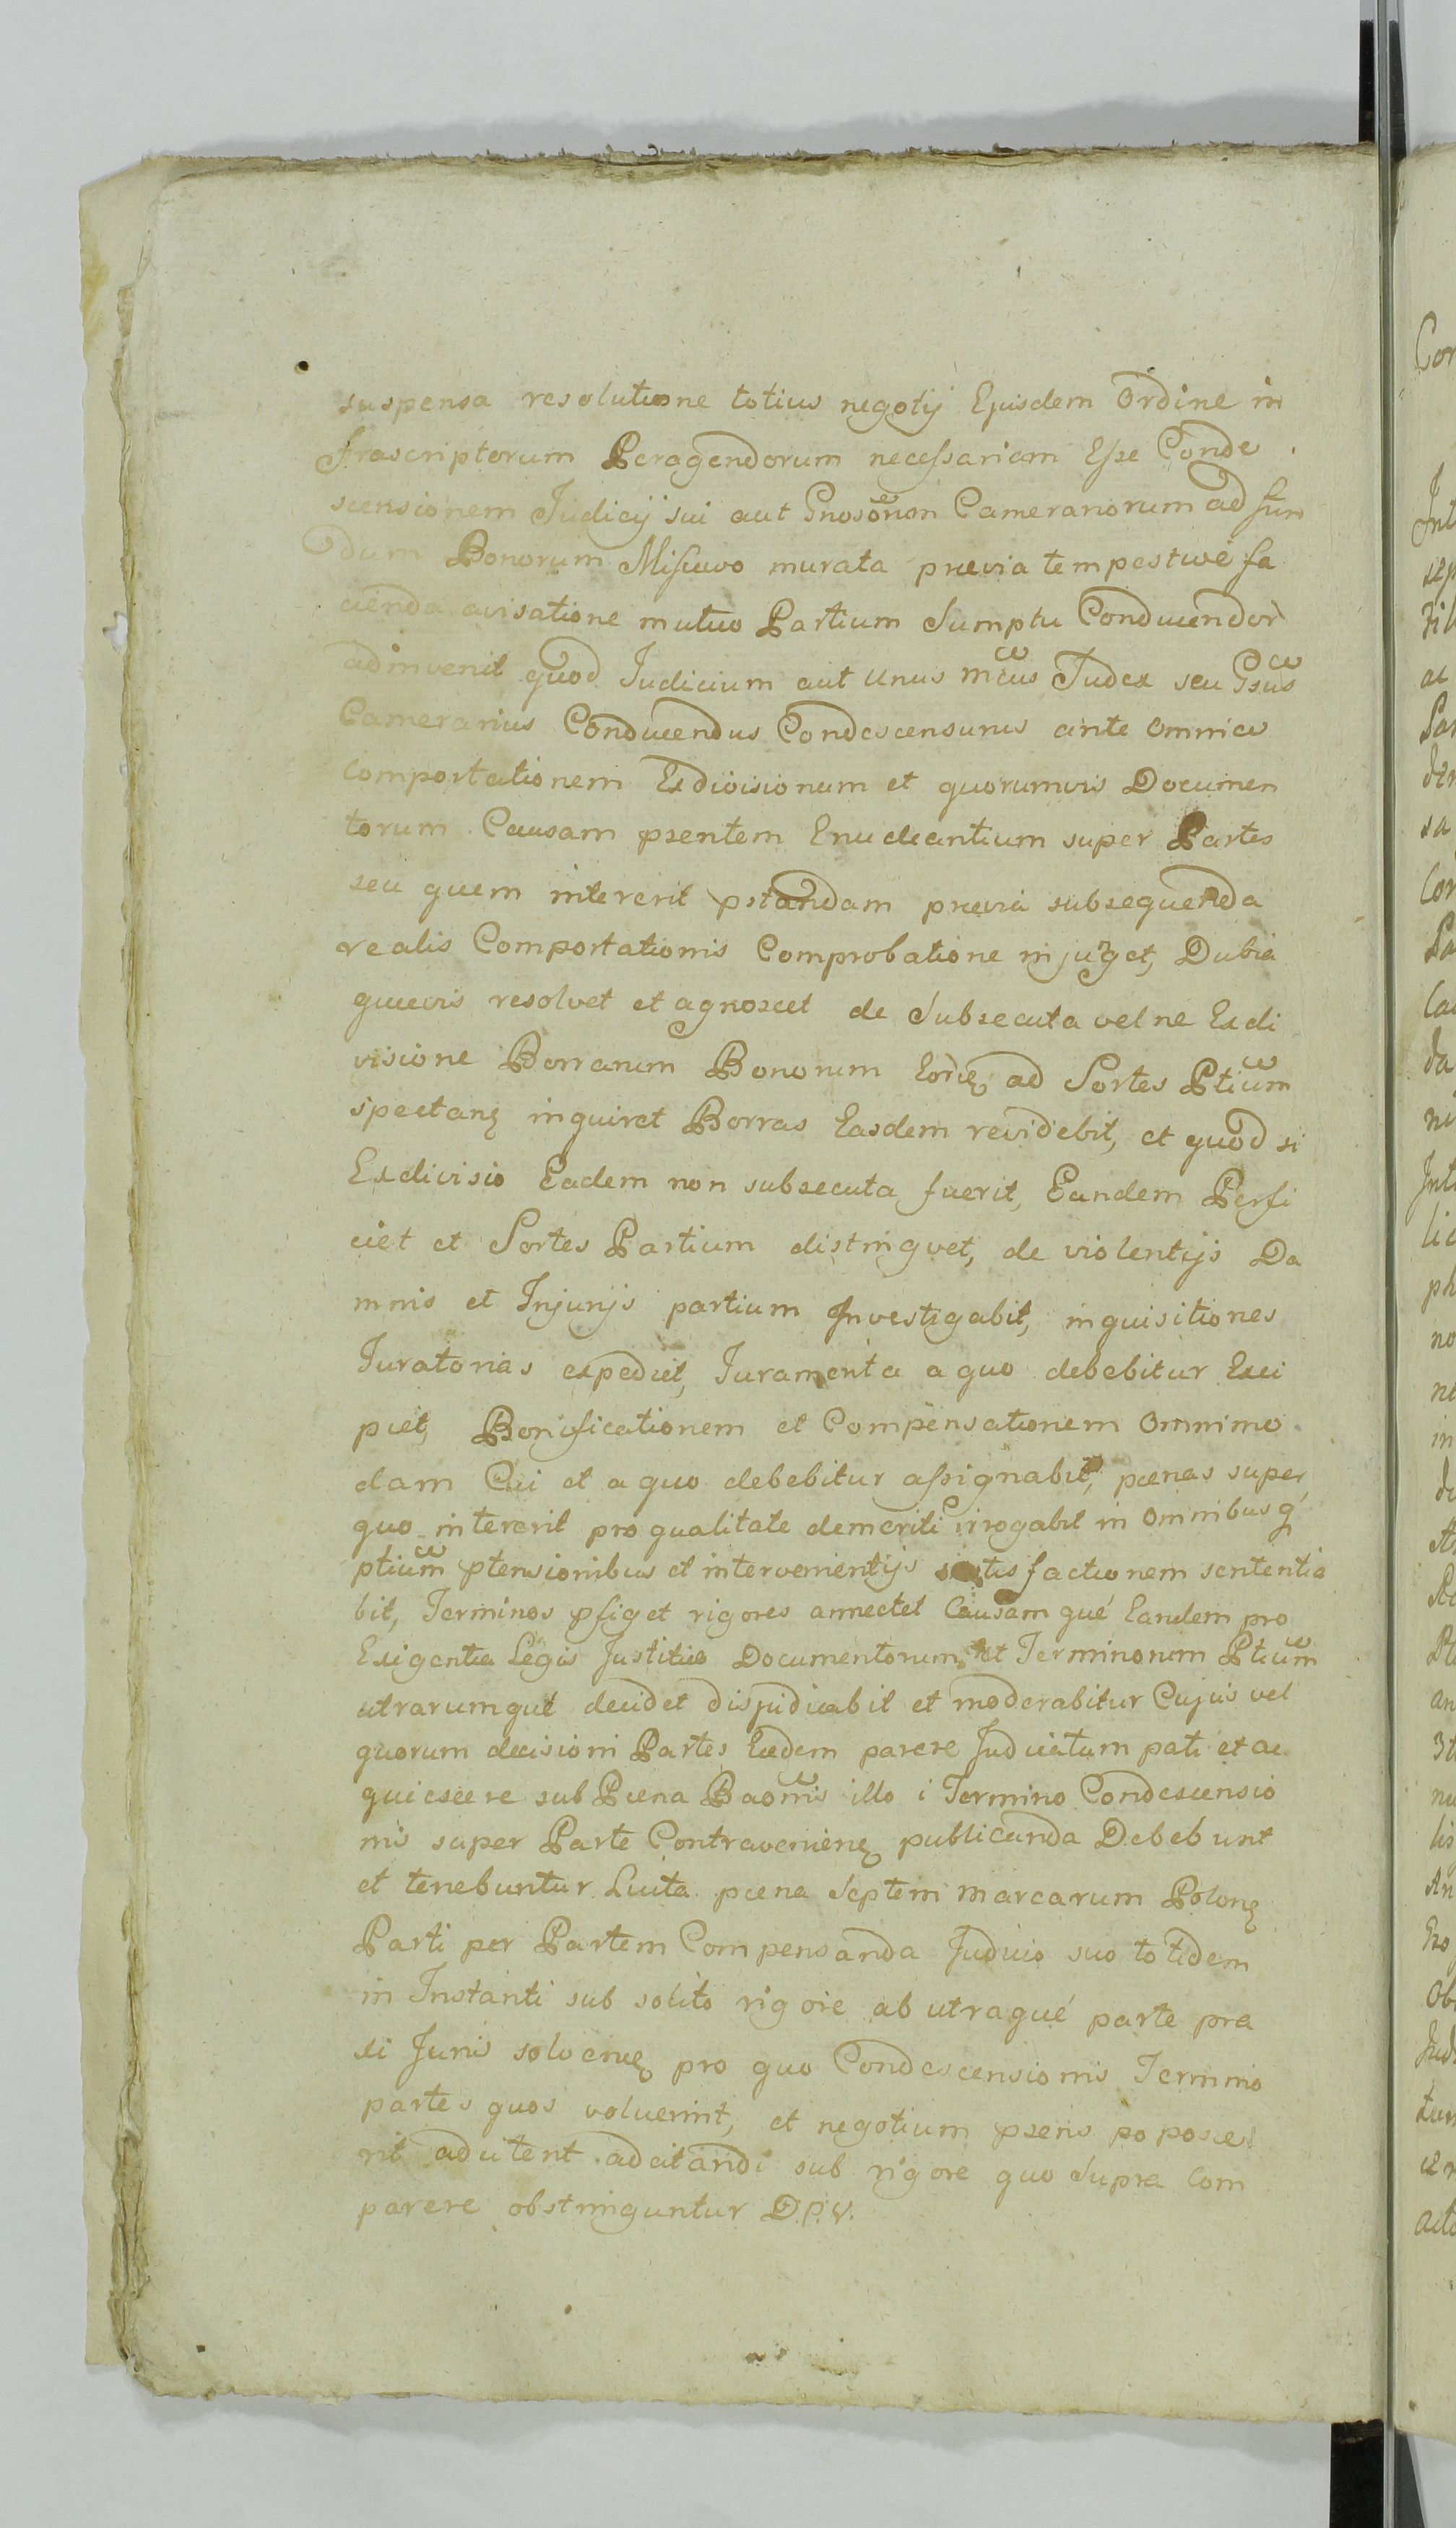 suspensa resolutione totius negotij Ejusdem Ordine in
frascriptorum Peragendorum necessariam Esse Conde
scensionem Judicij sui aut Gnosorum Camerariorum ad fun
dum Bonorum murata prævia tempestive fa
cienda avisatione mutuo Partium Sumptu Conducendor
adinvenit quod Judicium aut Unus Mcus Judex seu Gsus
Camerarius Conducendus Condescensurus ante omnia
Comportationem Exdivisionum et quorumvis Documen
torum Causam psentem Enucleantium super Partes
seu quem intererit pstandam prævia subsequenda
realis Comportationis Comprobatione injuget, Dubia
quævis resolvet et agnoscet de Subsecuta vel ne Exdi
visione Borrarum Bonorum Eorũ ad Sortes Ptium
spectanȩ inquiret Borras Easdem revidebit, et quod si
Exdivisio Eadem non subsecuta fuerit, Eandem Perfi
ciet et Sortes Partium distingvet, de violentijs Da
mnis et Injurijs partium Investigabit, inquisitiones
Juratorias expediet, Juramenta a quo debebitur Exci
piet, Bonificationem et Compensationem Omnimo
dam Cui et a quo debebitur assignabit, pænas super
quo intererit pro qualitate demeriti irrogabit in Omnibus q
ptium ptensionibus et intervenientijs satisfactionem sententia
bit, Terminos pfiget rigores annectet Causam què Eandem pro
Exigentia Legis Justitiæ Documentorum et Terminorum Ptium
utrarumquè decidet disjudicabit et moderabitur Cujus vel
quorum decisioni Partes Eædem parere Judicatum pati et ac
quiescere sub Pæna Baõnis illo i Termino Condescensio
nis super Parte Contravenienȩ publicanda Debebunt
et tenebuntur Luita pæna Septem marcarum Polonȩ
Parti per Partem Compensanda Judicio suo totidem
in Instanti sub solito rigore ab utraquè parte pra
xi Juris solvenȩ pro quo Condescensionis Termino
partes quos voluerint, et negotium psens poposce
rit adcitent adcitandi sub rigore quo Supra Com
parere obstringuntur D.P.V.